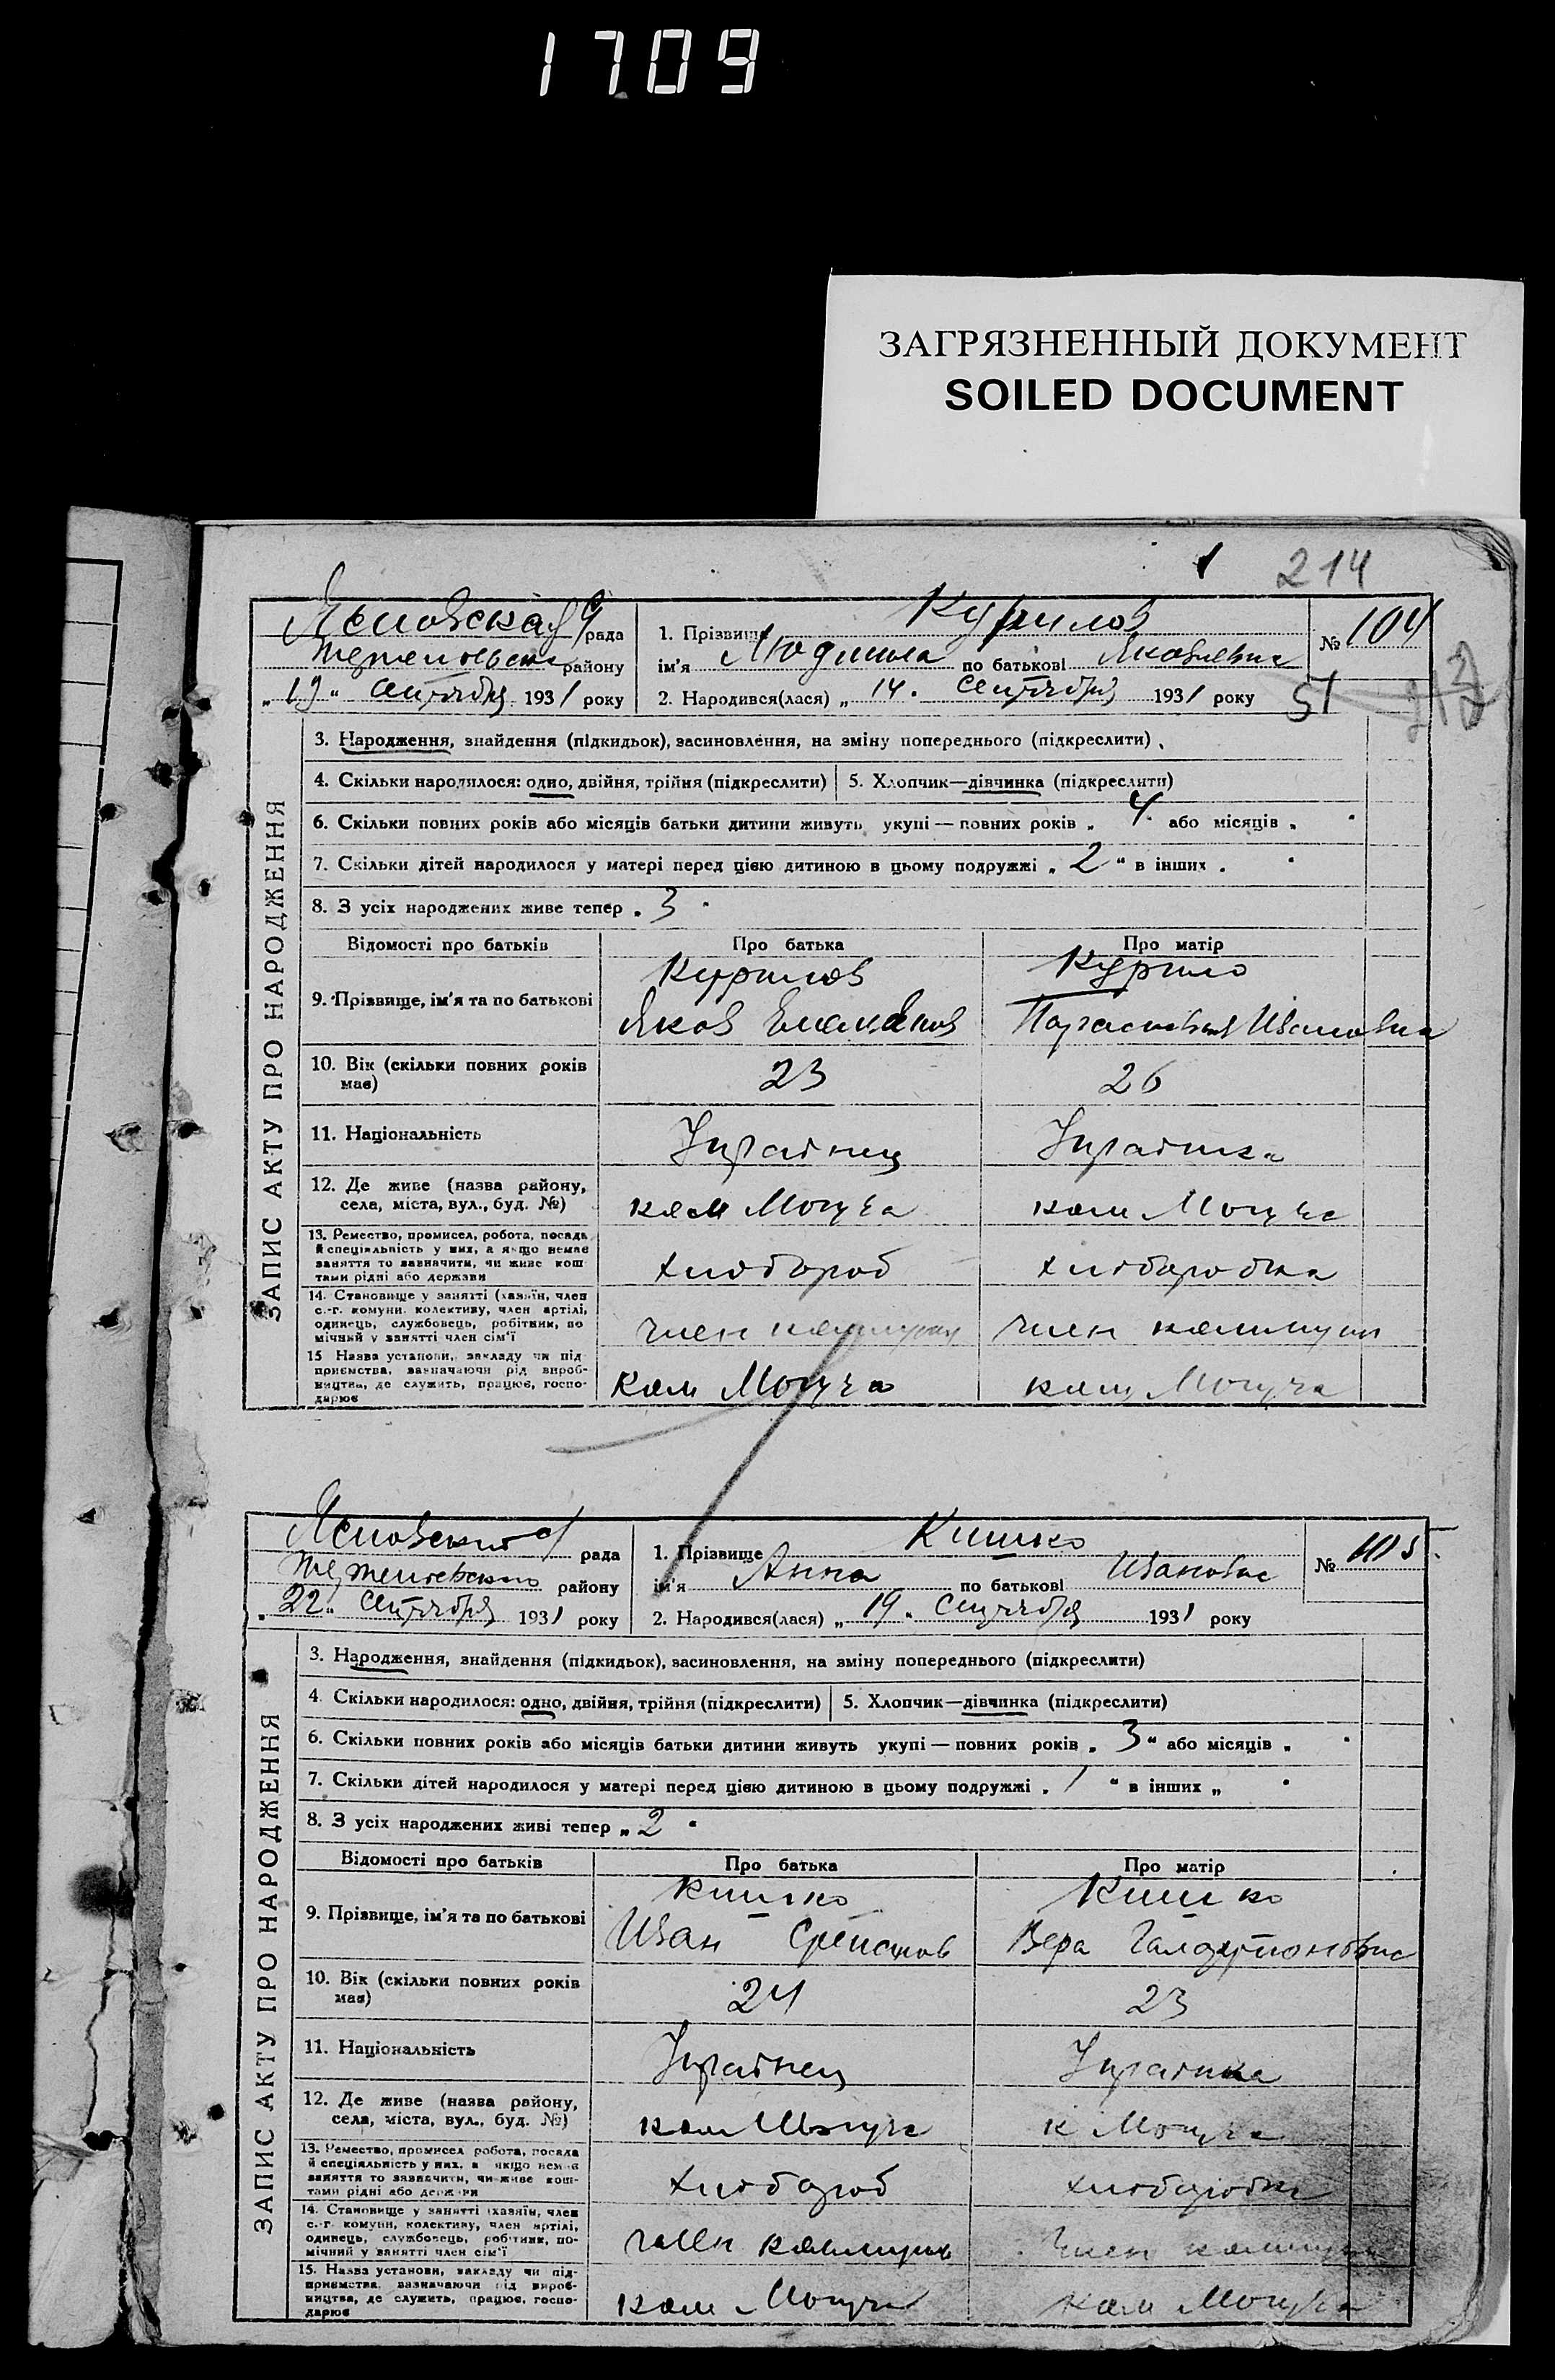 1709
ЗАГРЯЗНЕННЫЙ ДОКУМЕНТ
SOILED DOCUMENT
214
рада
району
"19" Сентября 1931 року
1. Прізвище Курилов
ім'я Людмила по батькові Яковлевна
2. Народився(лася) "14" Сентября 1931 року
№ 104
51
ЗАПИС АКТУ ПРО НАРОДЖЕННЯ
3. Народження, знайдення (підкидьок), засиновлення, на зміну попереднього (підкреслити)
4. Скільки народилося: одно, двійня, трійня (підкреслити) 5. Хлопчик—дівчинка (підкреслити)
6. Скільки повних років або місяців батьки дитини живуть укупі — повних років „ 4 " або місяців „
7. Скільки дітей народилося у матері перед цією дитиною в цьому подружжі „ 2 " в інших „
8. З усіх народжених живе тепер „ 3 "
Відомості про батьків Про батька Про матір
9. Прізвище, ім'я та по батькові Курилов Курило
Яков Параскевия Ивановна
10. Вік (скільки повних років має) 23 26
11. Національність Украінец Украінка
12. Де живе (назва району, села, міста, вул., буд. №) ком Могуча ком Могуча
13. Ремество, промисел, робота, посада й спеціяльність у них, а якщо немає заняття то зазначити, чи живе коштами рідні або держави хлибороб хлиборобка
14. Становище у занятті (хазяїн, член с.-г. комуни, колективу, член артілі, одинець, службовець, робітник, помічний у занятті член сім'ї член коммуни член коммуни
15 Назва установи, закладу чи підприємства, зазначаючи рід виробництва, де служить, працює, господарює Ком Могуча ком Могуча
рада
району
"22" Сентября 1931 року
1. Прізвище Кишко
ім'я Анна по батькові Ивановна
2. Народився(лася) "19" Сентября 1931 року
№ 105
ЗАПИС АКТУ ПРО НАРОДЖЕННЯ
3. Народження, знайдення (підкидьок), засиновлення, на зміну попереднього (підкреслити)
4. Скільки народилося: одно, двійня, трійня (підкреслити) 5. Хлопчик—дівчинка (підкреслити)
6. Скільки повних років або місяців батьки дитини живуть укупі — повних років „ 3 " або місяців „
7. Скільки дітей народилося у матері перед цією дитиною в цьому подружжі „ 1 " в інших „
8. З усіх народжених живі тепер „ 2 "
Відомості про батьків Про батька Про матір
9. Прізвище, ім'я та по батькові Кишко Кишко
Иван Степанов Вера
10. Вік (скільки повних років має) 24 23
11. Національність Украінец Украінка
12. Де живе (назва району, села, міста, вул., буд. №) ком Могуча к Могуча
13. Ремество, промисел робота, посада й спеціяльність у них, а якщо немає заняття то зазначити, чи живе коштами рідні або держави хлибороб хлиборобка
14. Становище у занятті (хазяїн, член с.-г. комуни, колективу, член артілі, одинець, службовець, робітник, помічний у занятті член сім'ї член коммуни член коммуни
15. Назва установи, закладу чи підприємства, зазначаючи рід виробництва, де служить, працює, господарює ком Могуча ком Могуча